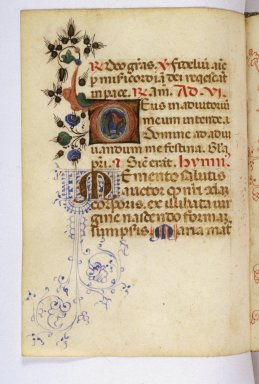 R Deo gras. V Fidelium aie
p misericordiam dei reqescat
in pace. R am. Ad. VI.
Deus in adiutoriu
meum intende. a
Domine ad adiu
uandum me festina. Gla
pri. Sic erat. hymn
Memento salutis
auctor qp nri
corporis. ex illibata uir
gine nascendo formaz
sumpsis Maria mat